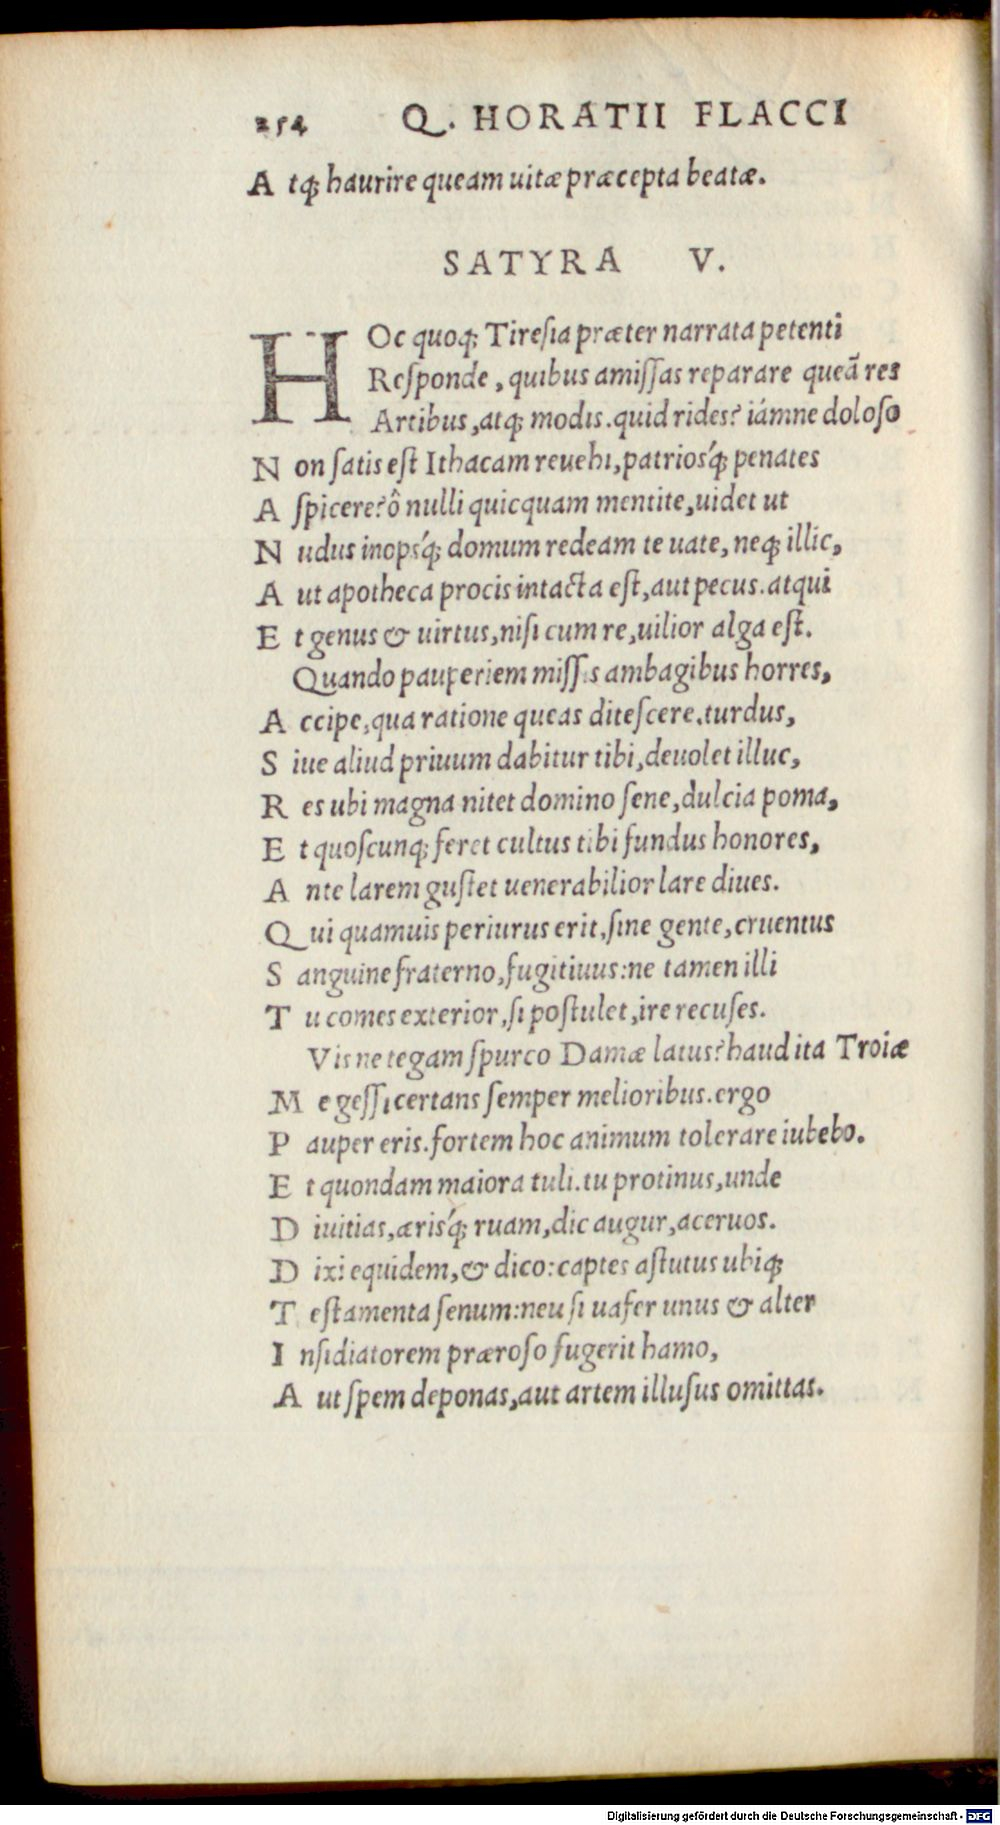 254 Q. HORATII FLACCI
A tq; haurire queam uitæ præcepta beatæ.
SATYRA V.
HOc quoq; Tiresia præter narrata petenti
Responde, quibus amissas reparare queã res
Artibus, atq; modis. quid rides? iámne doloso
N on satis est Ithacam reuehi, patriosq́; penates
A spicere? ô nulli quicquam mentite, uidet ut
N udus inopsq́; domum redeam te uate, neq; illic,
A ut apotheca procis intacta est, aut pecus. atqui
E t genus & uirtus, nisi cum re, uilior alga est.
Quando pauperiem missis ambagibus horres,
A ccipe, qua ratione queas ditescere. turdus,
S iue aliud priuum dabitur tibi, deuolet illuc,
R es ubi magna nitet domino sene, dulcia poma,
E t quoscunq; feret cultus tibi fundus honores,
A nte larem gustet uenerabilior lare diues.
Q ui quamuis periurus erit, sine gente, cruentus
S anguine fraterno, fugitiuus: ne tamen illi
T u comes exterior, si postulet, ire recuses.
Vis ne tegam spurco Damæ latus? haud ita Troiæ
M e gessi certans semper melioribus. ergo
P auper eris. fortem hoc animum tolerare iubebo.
E t quondam maiora tuli. tu protinus, unde
D iuitias, ærisq́; ruam, dic augur, aceruos.
D ixi equidem, & dico: captes astutus ubiq;
T estamenta senum: neu si uafer unus & alter
I nsidiatorem præroso fugerit hamo,
A ut spem deponas, aut artem illusus omittas.
Digitalisierung gefördert durch die Deutsche Forschungsgemeinschaft - DFG